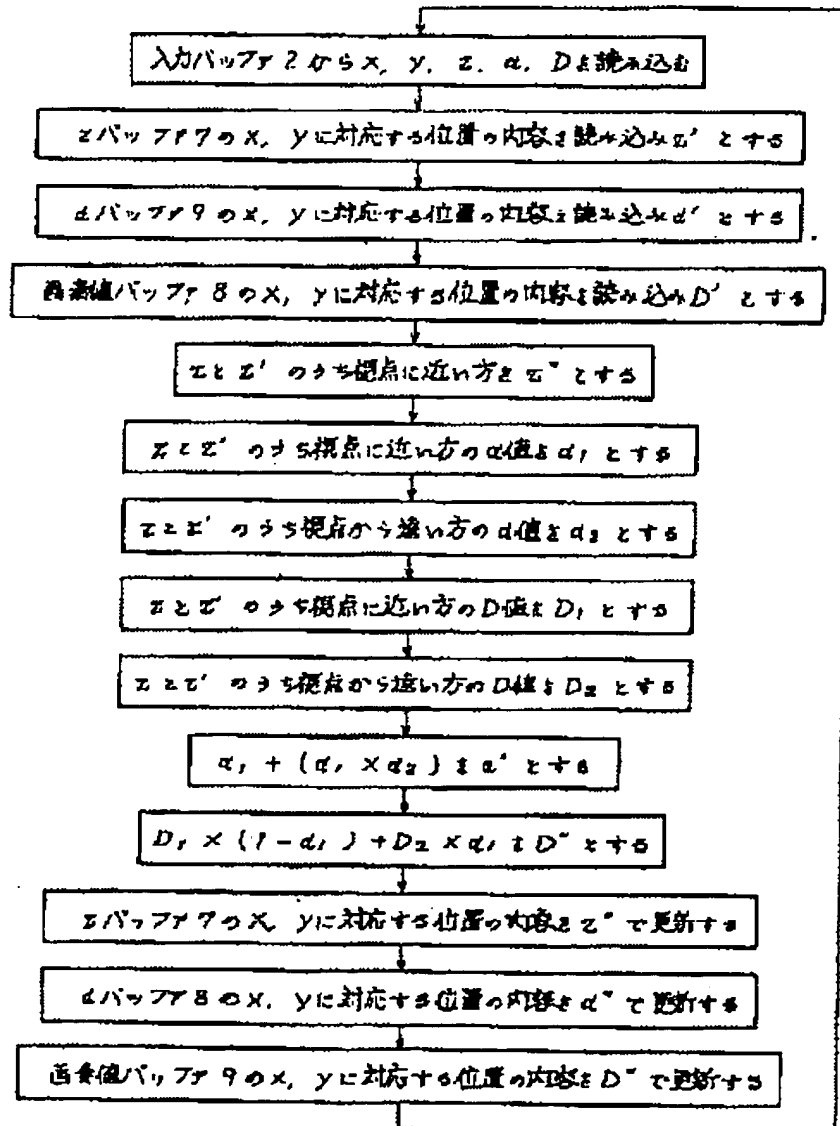 入力バッファ2からx, y, z, α, Dを読み込む
zバッファ7のx, yに対応する位置の内容を読み込みz'とする
αバッファ9のx, yに対応する位置の内容を読み込みα'とする
画素値バッファ8のx, yに対応する位置の内容を読み込みD'とする
zとz'のうち視点に近い方をz"とする
zとz'のうち視点に近い方のα値をα₁とする
zとz'のうち視点から遠い方のα値をα₂とする
zとz'のうち視点に近い方のD値をD₁とする
zとz'のうち視点から遠い方のD値をD₂とする
α₁+(α₁×α₂)をα"とする
D₁×(1-α₁)+D₂×α₁をD"とする
zバッファ7のx, yに対応する位置の内容をz"で更新する
αバッファ8のx, yに対応する位置の内容をα"で更新する
画素値バッファ9のx, yに対応する位置の内容をD"で更新する